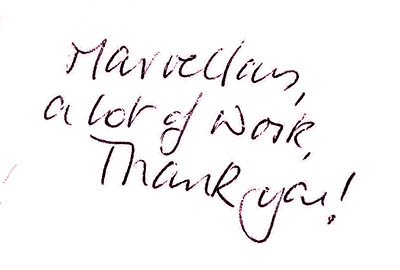 Marvellous,
a lot of work,
Thank you!